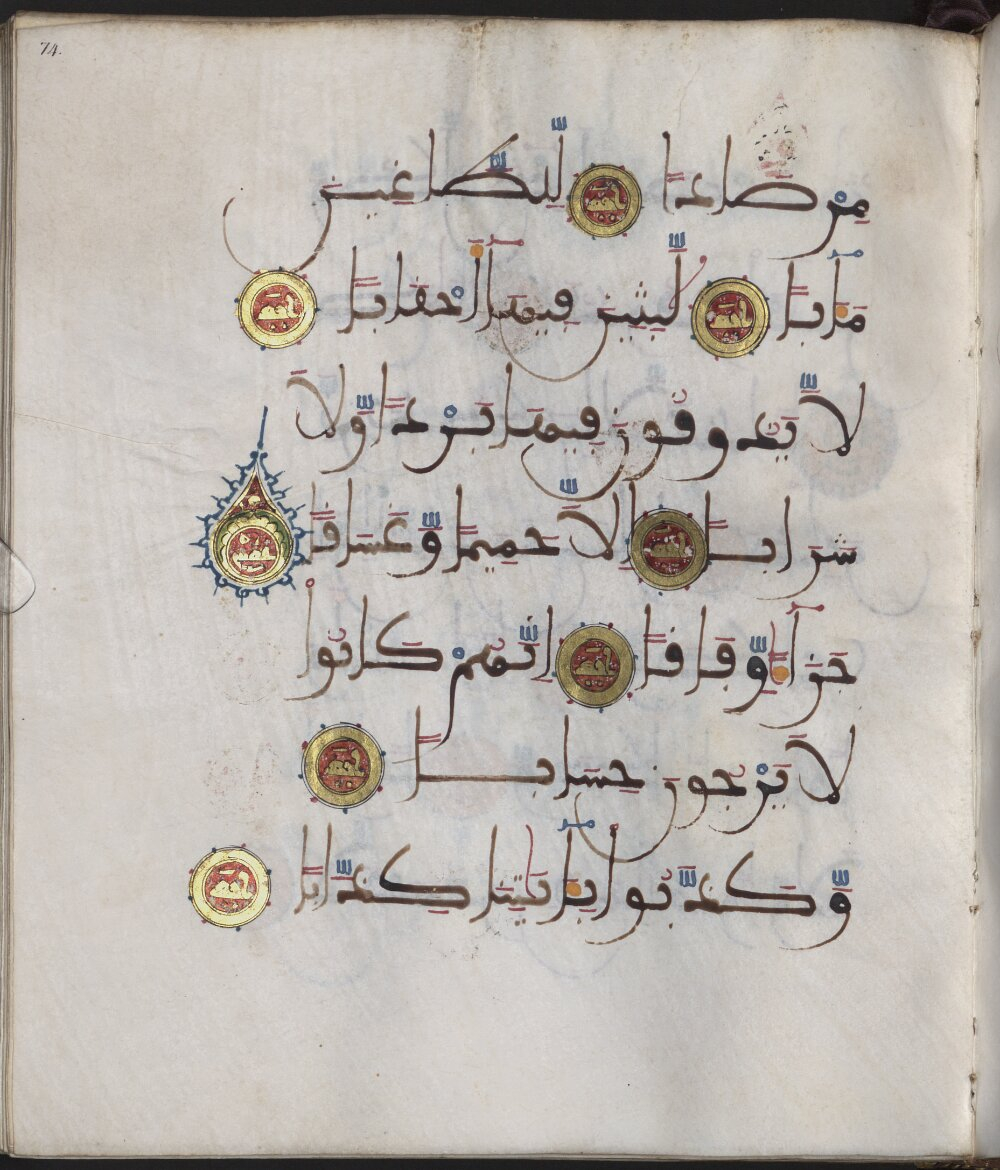 74.
مِرْصَادًا لِّلطَّاغِينَ
مَـَٔابًا لَّٰبِثِينَ فِيهَآ أَحْقَابًا
لَّا يَذُوقُونَ فِيهَا بَرْدًا وَّلَا
شَرَابًا اِلَّا حَمِيمًا وَّغَسَاقًا
جَزَآءً وِّفَاقًا اِنَّهُمْ كَانُوا
لَا يَرْجُونَ حِسَابًا
وَّكَذَّبُوا بِـَٔايَٰتِنَا كِذَّابًا